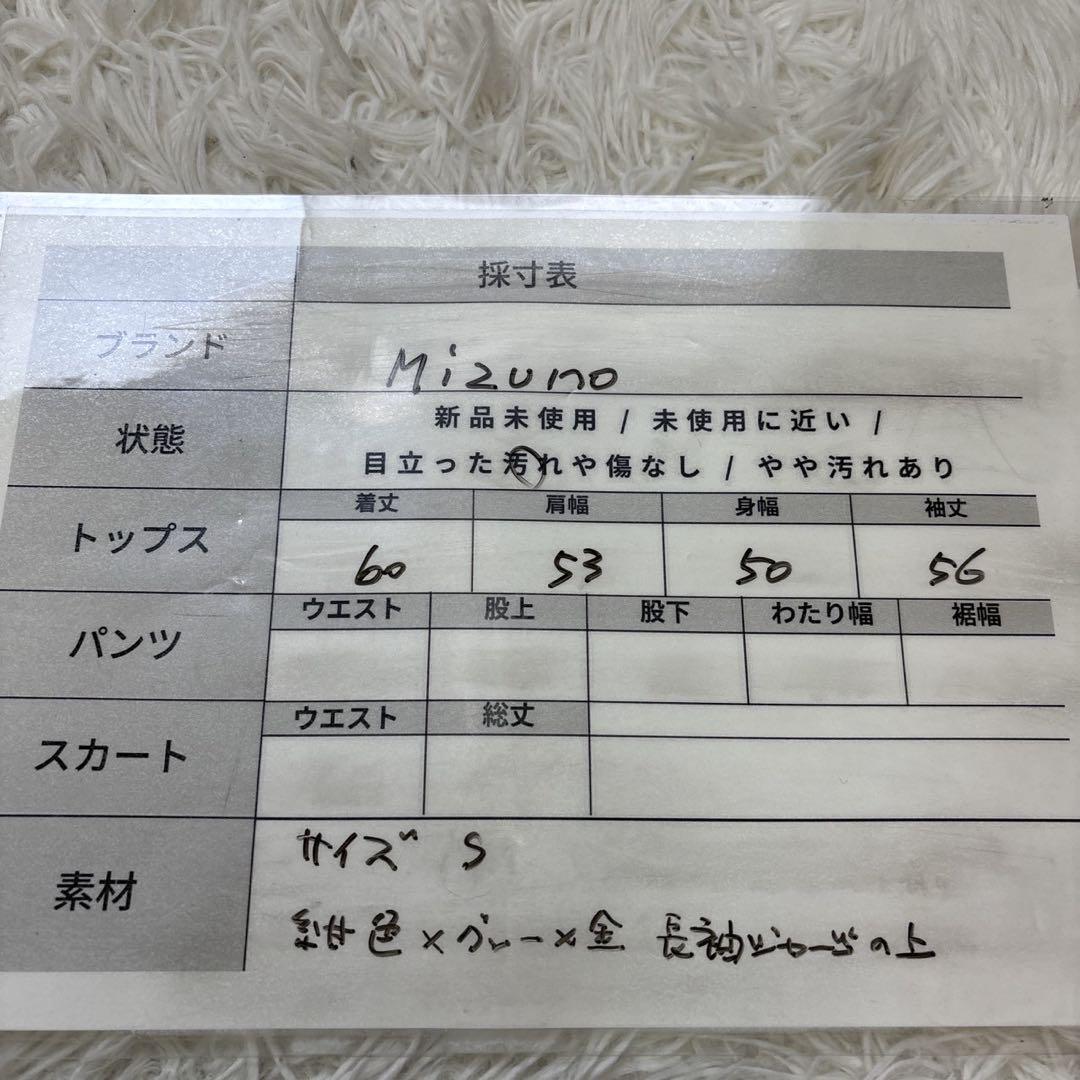 採寸表
ブランド
Mizuno
状態
新品未使用 / 未使用に近い /
目立った汚れや傷なし / やや汚れあり
トップス
着丈 肩幅 身幅 袖丈
60 53 50 56
パンツ
ウエスト 股上 股下 わたり幅 裾幅
スカート
ウエスト 総丈
素材
サイズ S
紺色×グレー×金 長袖ジャージの上